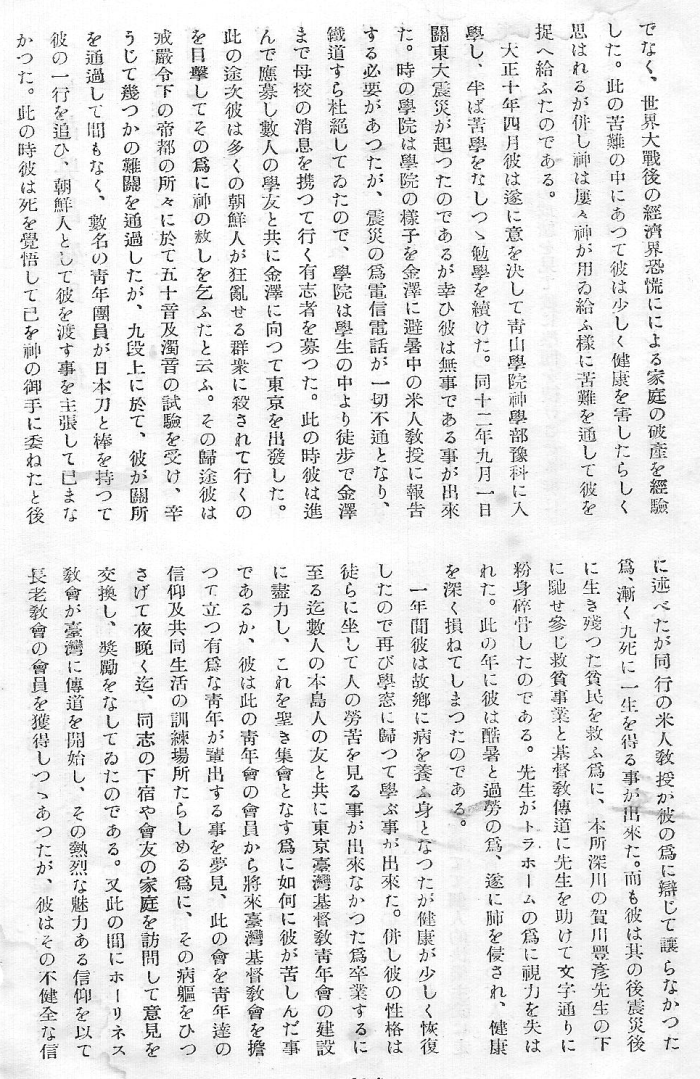 でなく、世界大戰後の經濟界恐慌にによる家庭の破產を經驗
した。此の苦難の中にあつて彼は少しく健康を害したらしく
思はれるが併し神は屢々神が用ゐ給ふ樣に苦難を通して彼を
捉へ給ふたのである。
大正十年四月彼は遂に意を決して靑山學院神學部豫科に入
學し、半ば苦學をなしつゝ勉學を續けた。同十二年九月一日
關東大震災が起つたのであるが幸ひ彼は無事である事が出來
た。時の學院は學院の樣子を金澤に避暑中の米人敎授に報告
する必要があつたが、震災の爲電信電話が一切不通となり、
鐵道すら杜絕してゐたので、學院は學生の中より徒步で金澤
まで母校の消息を携つて行く有志者を募つた。此の時彼は進
んで應募し數人の學友と共に金澤に向つて東京を出發した。
此の途次彼は多くの朝鮮人が狂亂せる群衆に殺されて行くの
を目擊してその爲に神の赦しを乞ふたと云ふ。その歸途彼は
戒嚴令下の帝都の所々に於て五十音及濁音の試驗を受け、辛
うじて幾つかの難關を通過したが、九段上に於て、彼が關所
を通過して間もなく、數名の靑年團員が日本刀と棒を持つて
彼の一行を追ひ、朝鮮人として彼を渡す事を主張して已まな
かつた。此の時彼は死を覺悟して己を神の御手に委ねたと後
に述べたが同行の米人敎授が彼の爲に辯じて讓らなかつた
爲、漸く九死に一生を得る事が出來た。而も彼は其の後震災後
に生き殘つた貧民を救ふ爲に、本所深川の賀川豐彥先生の下
に馳せ參じ救貧事業と基督敎傳道に先生を助けて文字通りに
粉身碎骨したのである。先生がトラホームの爲に視力を失は
れた。此の年に彼は酷暑と過勞の爲、遂に肺を侵され、健康
を深く損ねてしまつたのである。
一年間彼は故鄕に病を養ふ身となつたが健康が少しく恢復
したので再び學窓に歸つて學ぶ事が出來た。併し彼の性格は
徒らに坐して人の勞苦を見る事が出來なかつた爲卒業するに
至る迄數人の本島人の友と共に東京臺灣基督敎靑年會の建設
に盡力し、これを聖き集會となす爲に如何に彼が苦しんだ事
であるか、彼は此の靑年會の會員から將來臺灣基督敎會を擔
つて立つ有爲な靑年が輩出する事を夢見、此の會を靑年達の
信仰及共同生活の訓練場所たらしめる爲に、その病軀をひつ
さげて夜晚く迄、同志の下宿や會友の家庭を訪問して意見を
交換し、獎勵をなしてゐたのである。又此の間にホーリネス
敎會が臺灣に傳道を開始し、その熱烈な魅力ある信仰を以て
長老敎會の會員を獲得しつゝあつたが、彼はその不健全な信